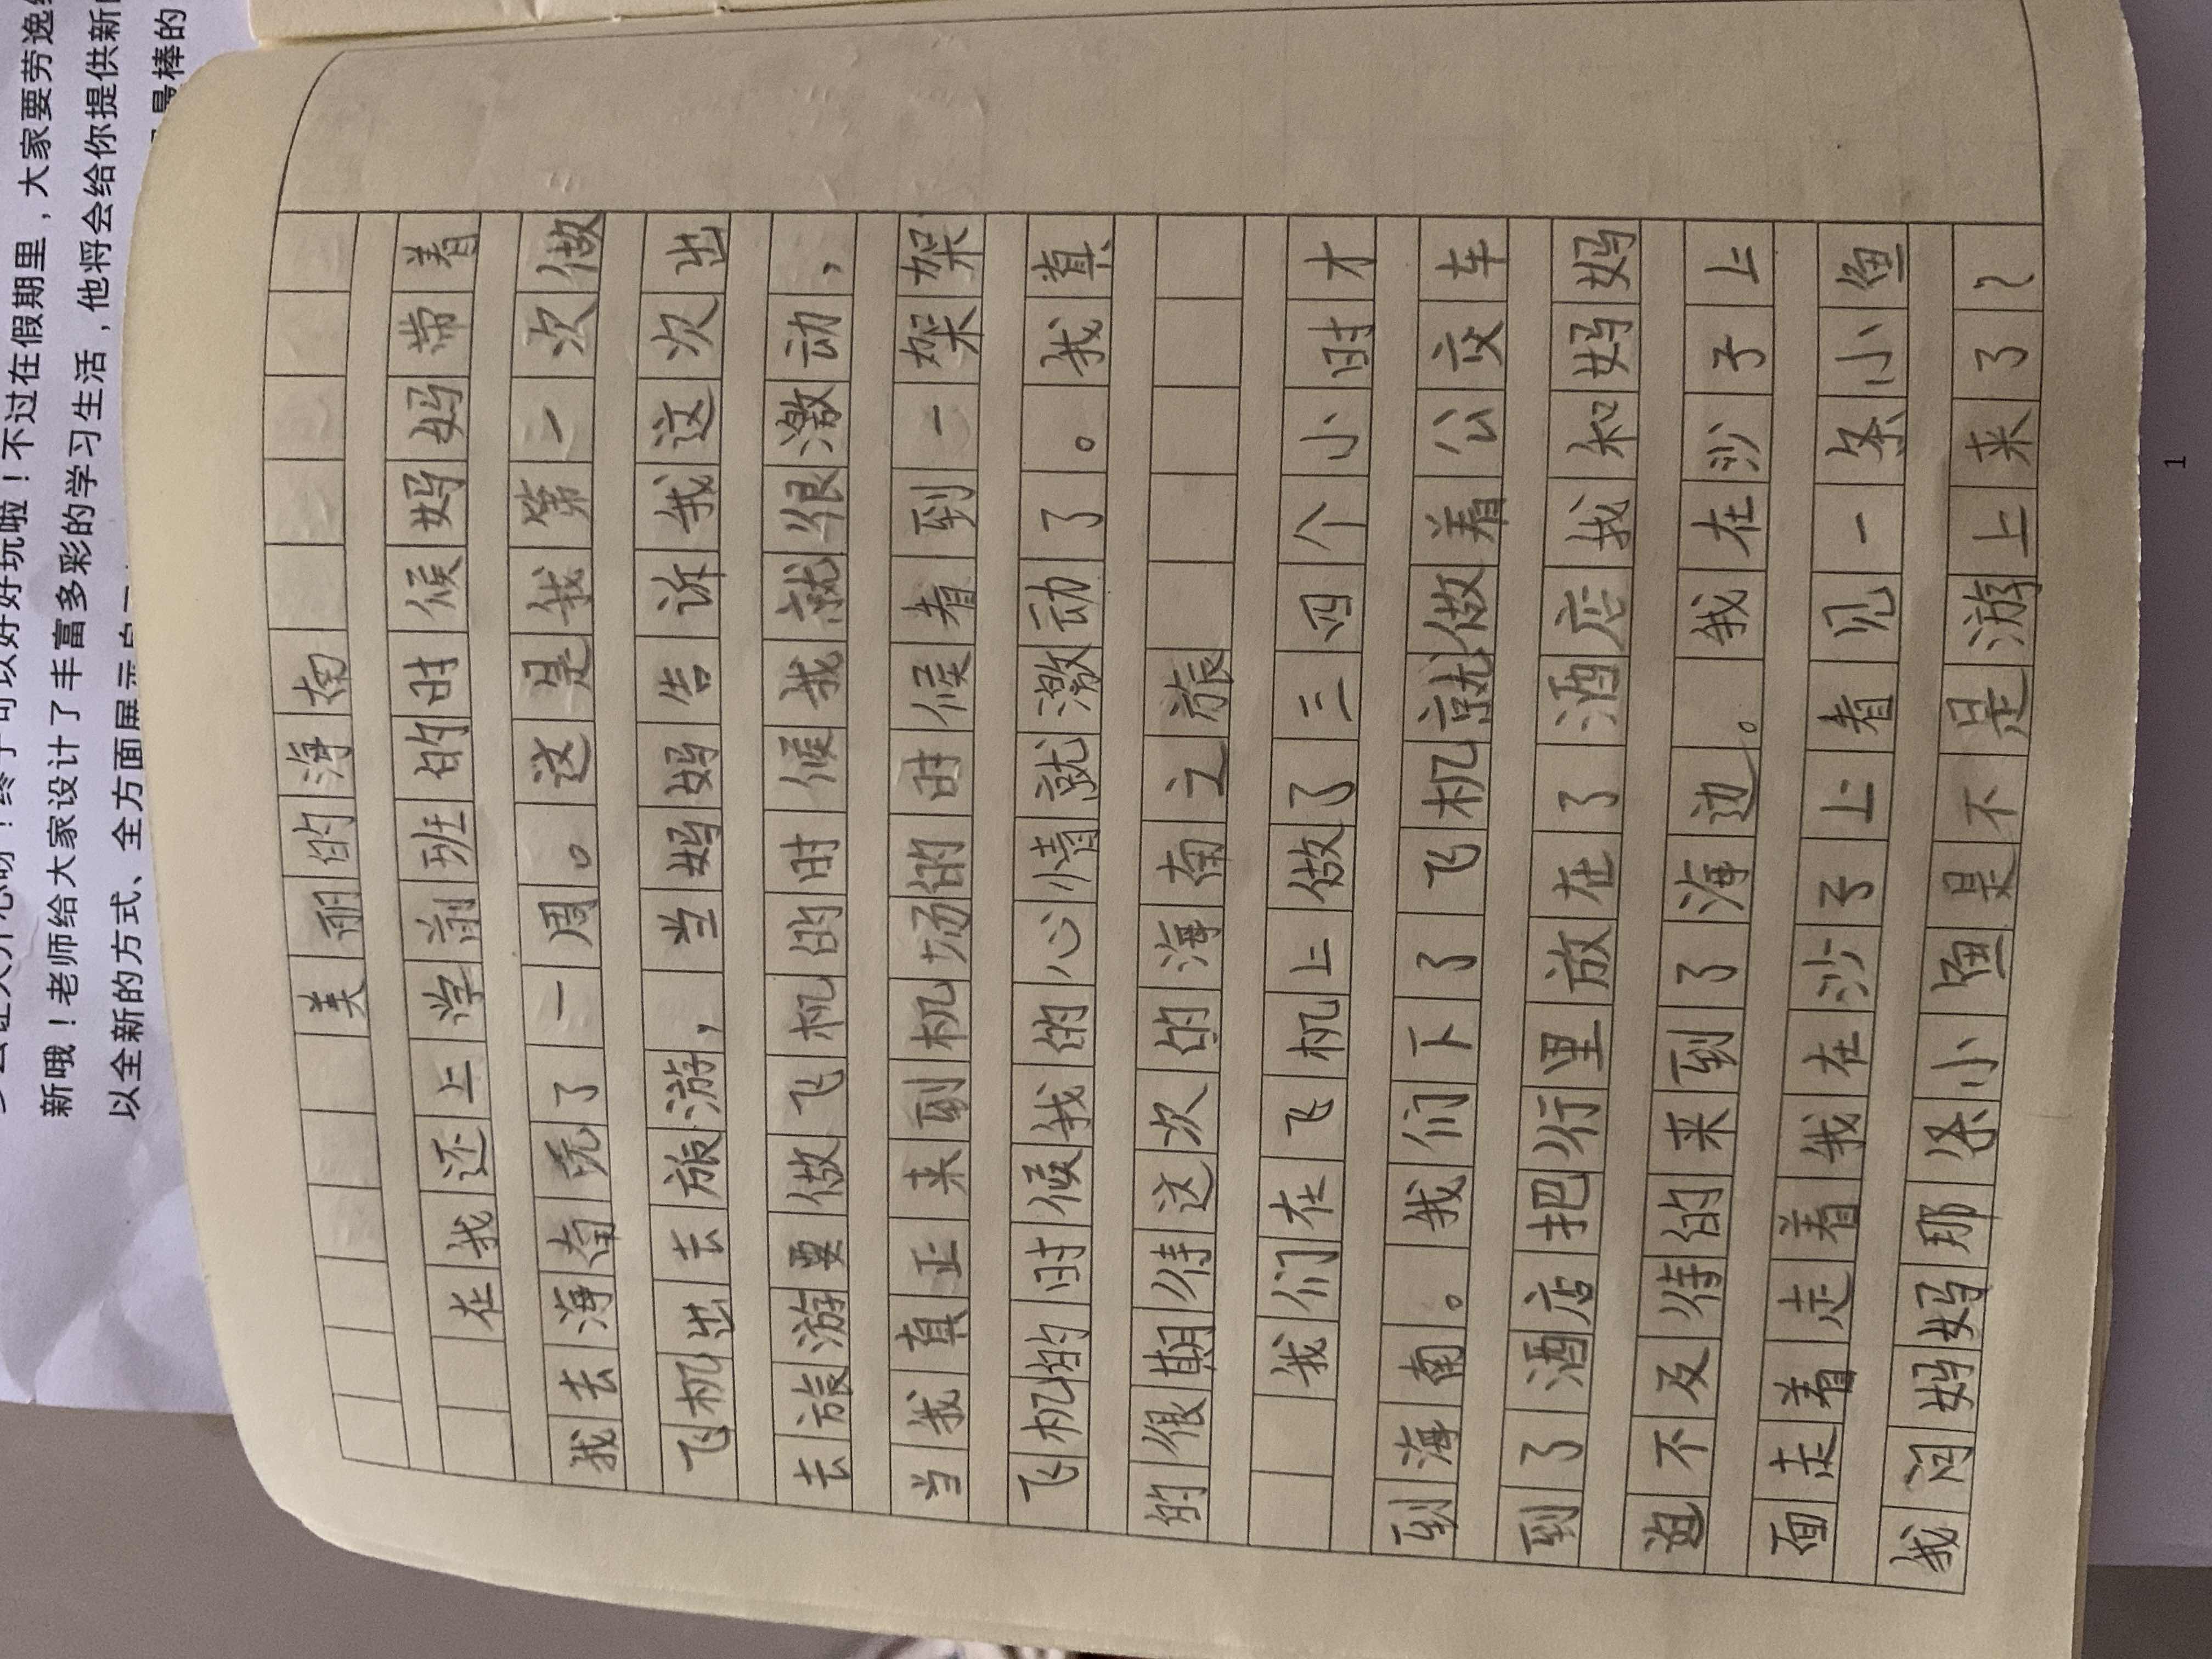 可以好好玩啦！不过在假期里，大家要劳逸
新哦！老师给大家设计了丰富多彩的学习生活，他将会给你提供新
以全新的方式、全方面展示
最棒的
美丽的海南
在我还上学前班的时候妈妈带着
我去海南玩了一周。这是我第一次做
飞机出去旅游，当妈妈告诉我这次出
去旅游要做飞机的时候我就很激动，
当我真正来到机场的时候看到一架架
飞机的时候我的心情就激动了。我真
的很期待这次的海南之旅
我们在飞机上做了三四个小时才
到海南。我们下了飞机就做着公交车
到了酒店把行里放在了酒店我和妈妈
迫不及待的来到了海边。我在沙子上
面走着走着我在沙子上看见一条小鱼
我问妈妈那条小鱼是不是游上来了？
1